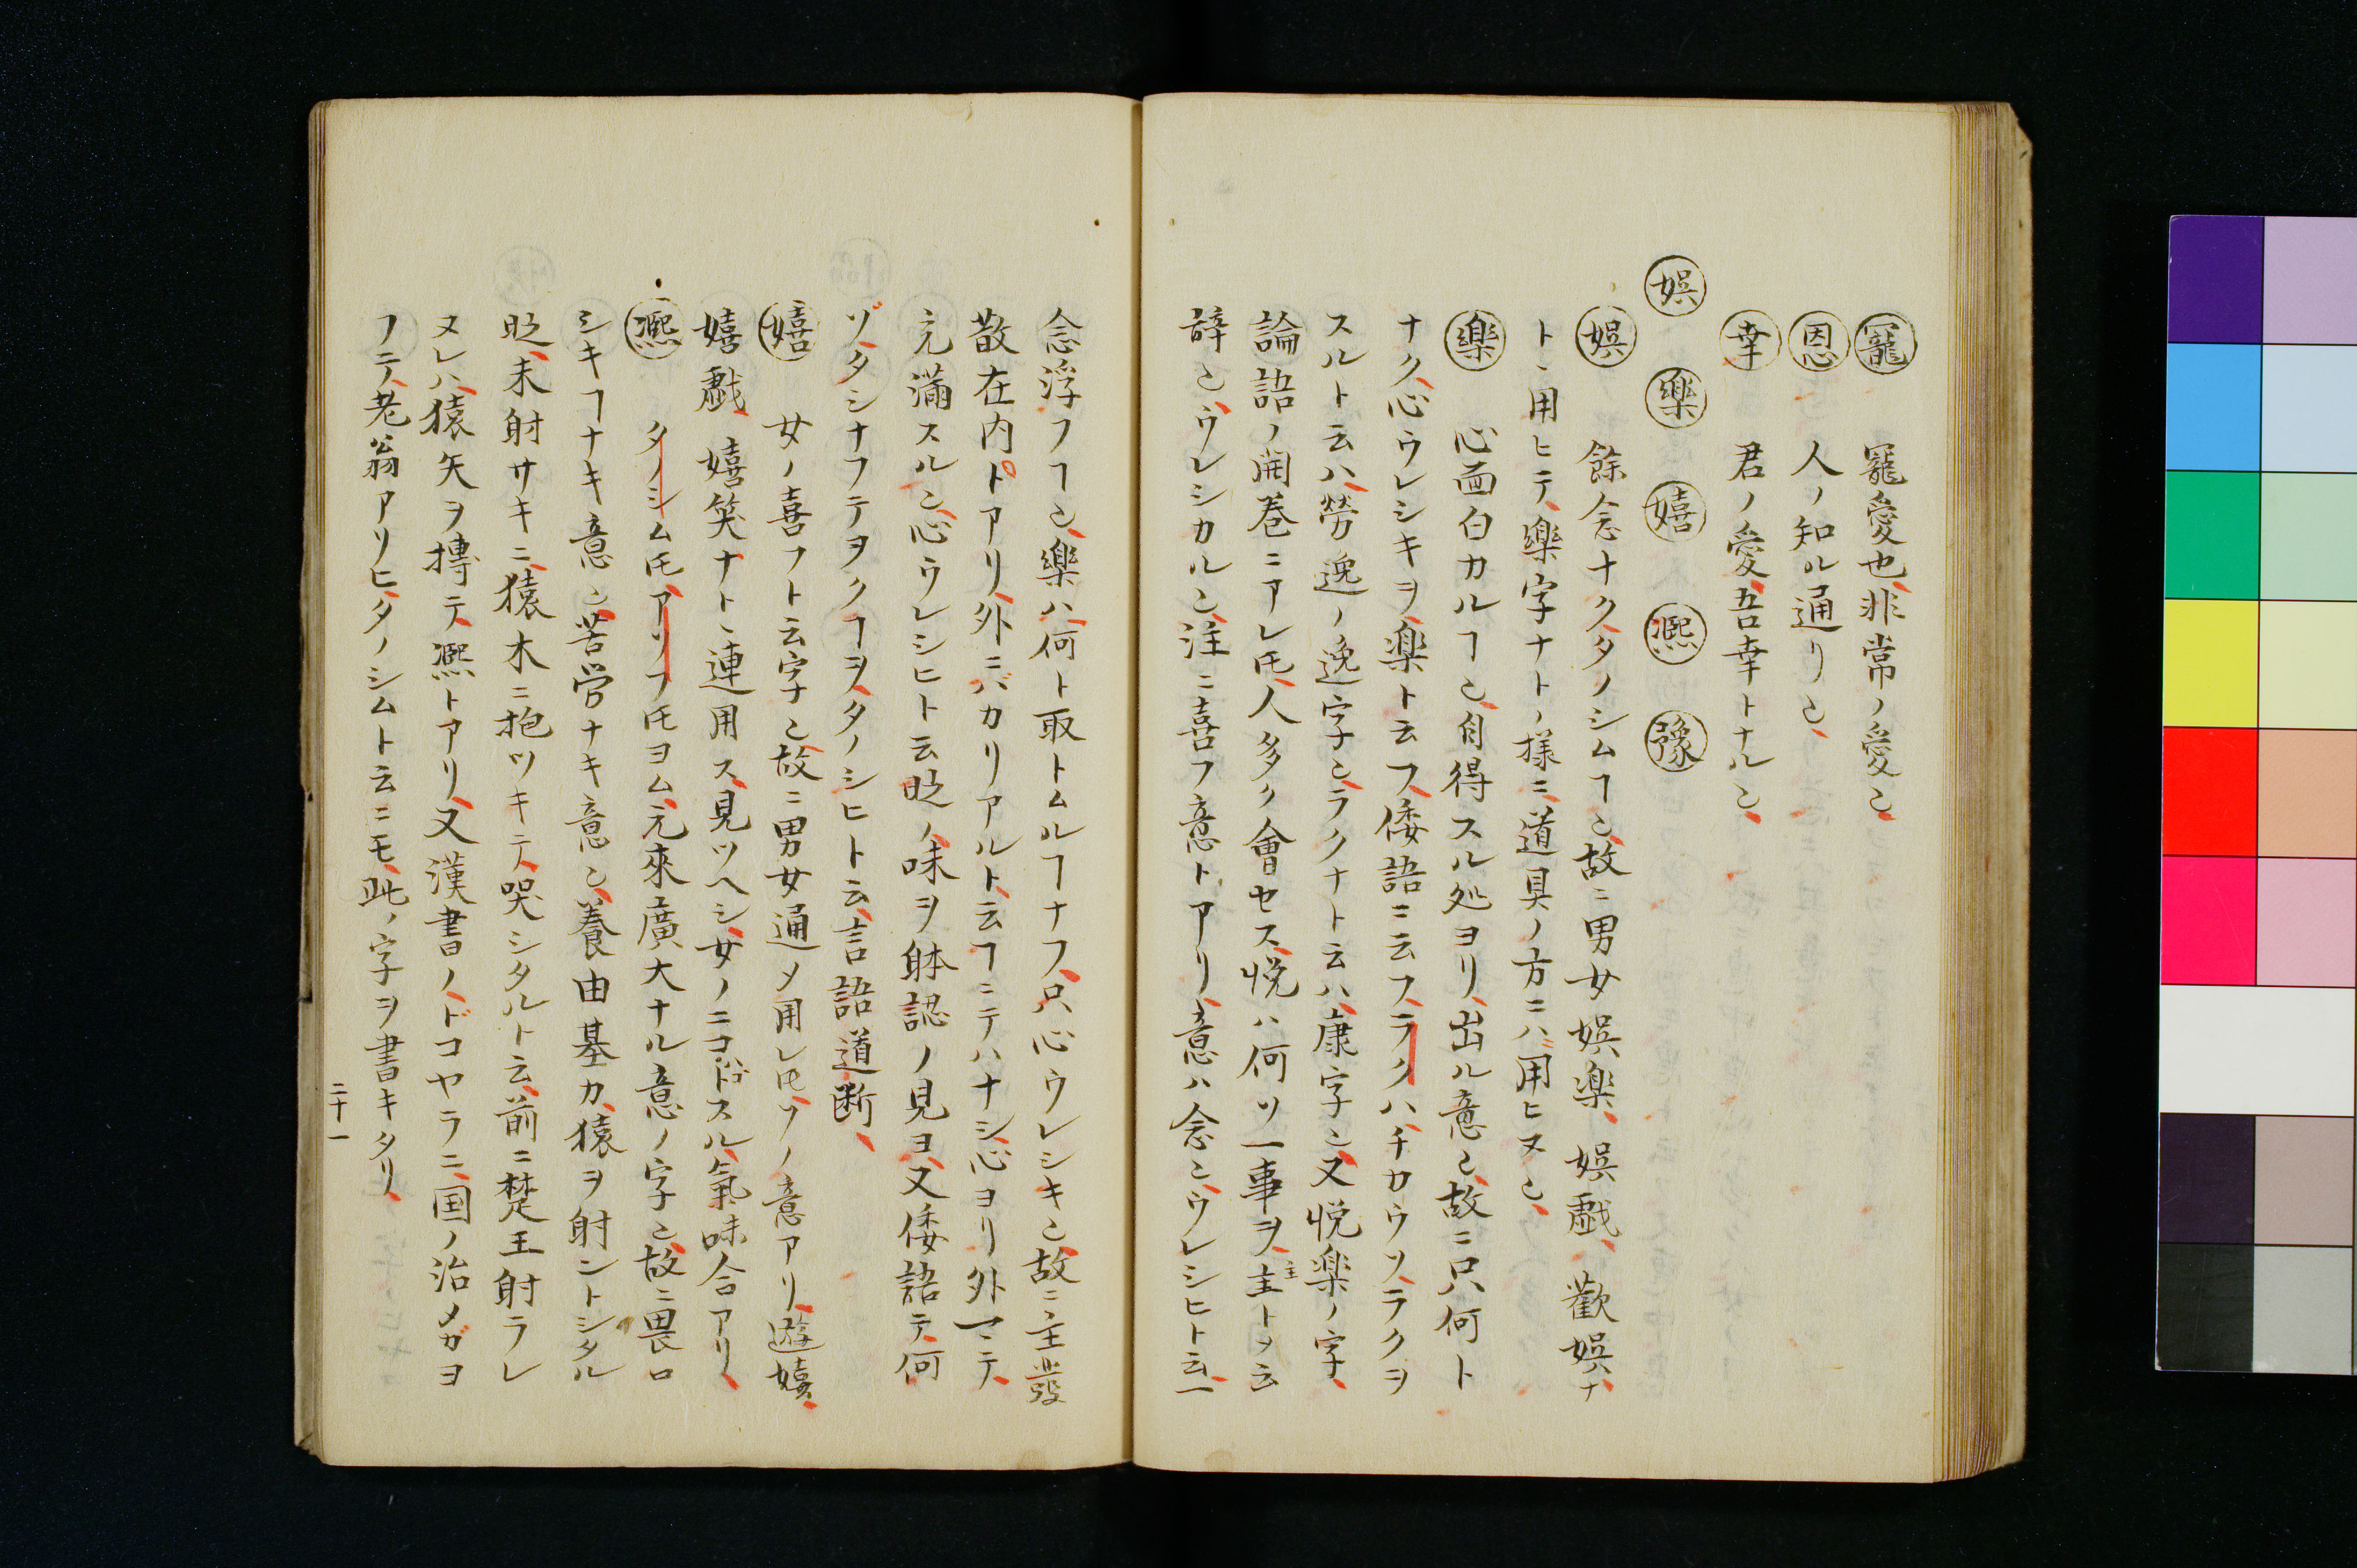 寵 寵愛也非常ノ愛也
恩 人ノ知ル通リ也
幸 君ノ愛吾幸トナル也
娯 樂 嬉 凞 豫
娯 餘念ナクタノシムヿ也故ニ男女娯楽、娯戯、歡娯ナ
ト、用ヒテ樂字ナトノ様ニ道具ノ方ニハ用ヒヌ也
樂 心面白カルヿ也自得スル処ヨリ出ル意也故ニ只何ト
ナク心ウレシキヲ樂ト云フ倭語ニ云フラクハチカウソラクヲ
スルト云ハ勞逸ノ逸字也ラクナト云ハ康字也又悦楽ノ字
論語ノ開巻ニアレ𪜈人多ク會セス悦ハ何ソ一事ヲ主トメ云
辞也ウレシカル也注ニ喜フ意トアリ意ハ念也ウレシヒト云一
念浮フヿ也樂ハ何ト取トムルヿナフ只心ウレシキ也故ニ主發
散在内トアリ外ニバカリアルト云フニテハナシ心ヨリ外マテ
充滿スル也心ウレシヒト云時ノ味ヲ躰認ノ見ヨ又倭語テ何
ゾタシナフテヲクヿヲタノシヒト云言語道断
嬉 女ノ喜フト云字也故ニ男女通メ用レ𪜈ソノ意アリ遊嬉、
嬉戯 嬉笑ナト連用ス見ツヘシ女ノニコトスル氣味合アリ
凞 タノシム𪜈アソフ𪜈ヨム元來廣大ナル意ノ字也故ニ畏ロ
シキヿナキ意也苦労ナキ意也養由基カ猿ヲ射ントシタル
時未射サキニ猿木ニ抱ツキテ哭シタルト云前ニ楚王射ラレ
ヌレハ猿矢ヲ摶テ凞トアリ又漢書ノドコヤラニ国ノ治メガヨ
フテ老翁アリヒタノシムト云ニモ此ノ字ヲ書キタリ
二十一